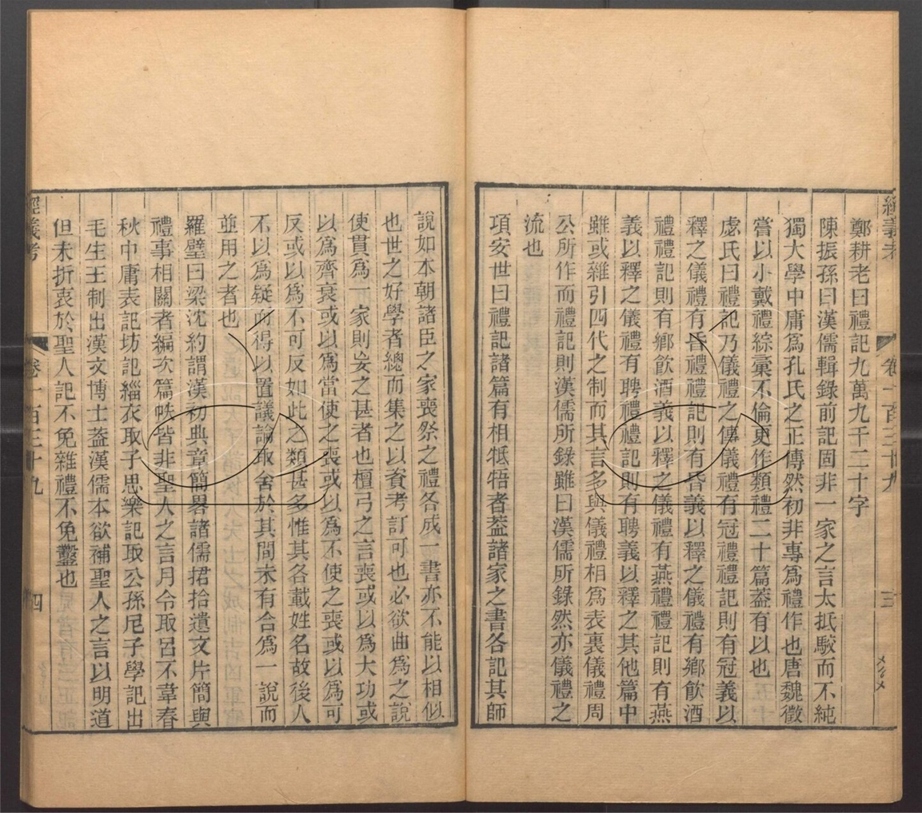 經義考
卷一百三十九
三
鄭耕老曰禮記九萬九千二十字
陳振孫曰漢儒輯錄前記固非一家之言太抵駁而不純
獨大學中庸爲孔氏之正傳然初非專爲禮作也唐魏徵
嘗以小戴禮綜彙不倫更作類禮二十篇葢有以也
虙氏曰禮記乃儀禮之傳儀禮有冠禮禮記則有冠義以
釋之儀禮有昏禮禮記則有昏義以釋之儀禮有鄉飲酒
禮禮記則有鄉飲酒義以釋之儀禮有燕禮禮記則有燕
義以釋之儀禮有聘禮禮記則有聘義以釋之其他篇中
雖或雜引四代之制而其言多與儀禮相爲表裏儀禮周
公所作而禮記則漢儒所錄雖曰漢儒所錄然亦儀禮之
流也
項安世曰禮記諸篇有相牴牾者葢諸家之書各記其師
說如本朝諸臣之家喪祭之禮各成一書亦不能以相似
也世之好學者總而集之以資考訂可也必欲曲爲之說
使貫爲一家則妄之甚者也檀弓之言喪或以爲大功或
以爲齊衰或以爲當使之喪或以爲不使之喪或以爲可
反或以爲不可反如此之類甚多惟其各載姓名故後人
不以爲疑而得以置議論取舍於其間未有合爲一說而
並用之者也
羅璧曰梁沈約謂漢初典章簡畧諸儒捃拾遺文片簡與
禮事相關者編次篇帙皆非聖人之言月令取呂不韋春
秋中庸表記坊記緇衣取子思樂記取公孫尼子學記出
毛生王制出漢文博士葢漢儒本欲補聖人之言以明道
但未折衷於聖人記不免雜禮不免鑿也
經義考
卷一百三十九
四